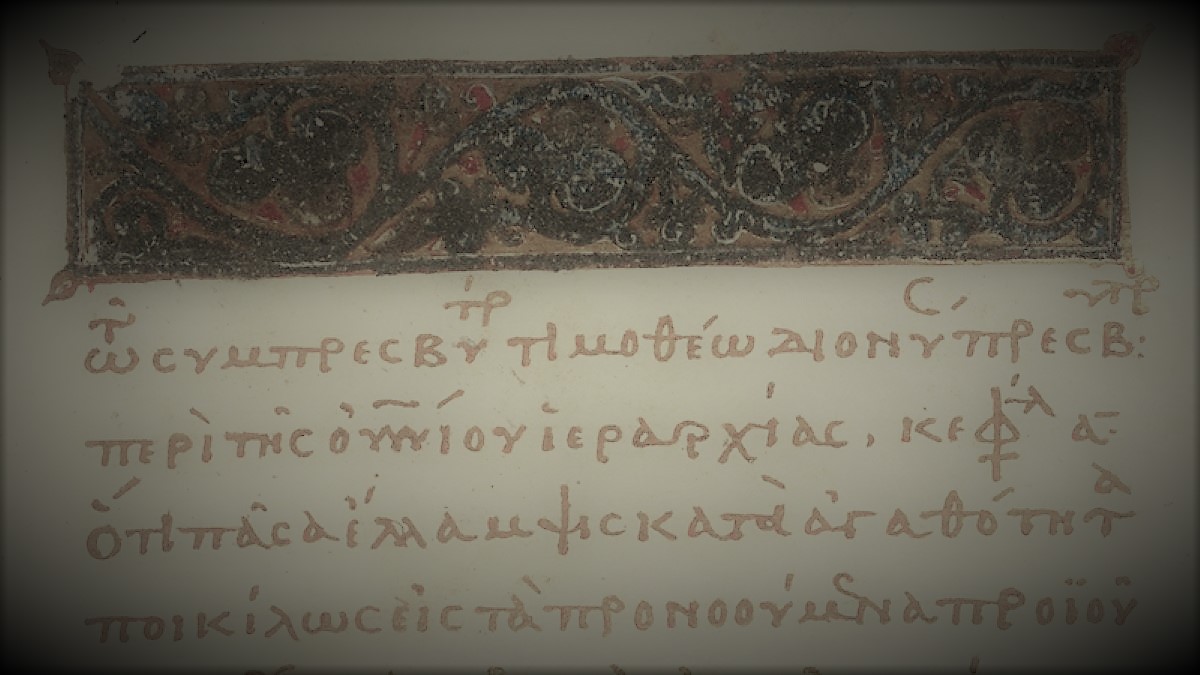 τῶ συμπρεσβυτρ τιμοθέω διονυς πρεσβ:
περὶ τῆς οὐνίου ἱεραρχίας, κεφλ α
ὅτι πᾶσα ἔλλαμψις κατὰ ἀγαθότητα
ποικίλως εἰς τὰ προνοούμενα προϊοῦ